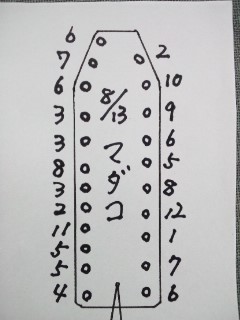 6
7
6
3
3
8
3
2
11
5
5
4
8/13
マダコ
2
10
9
6
5
8
12
1
7
6